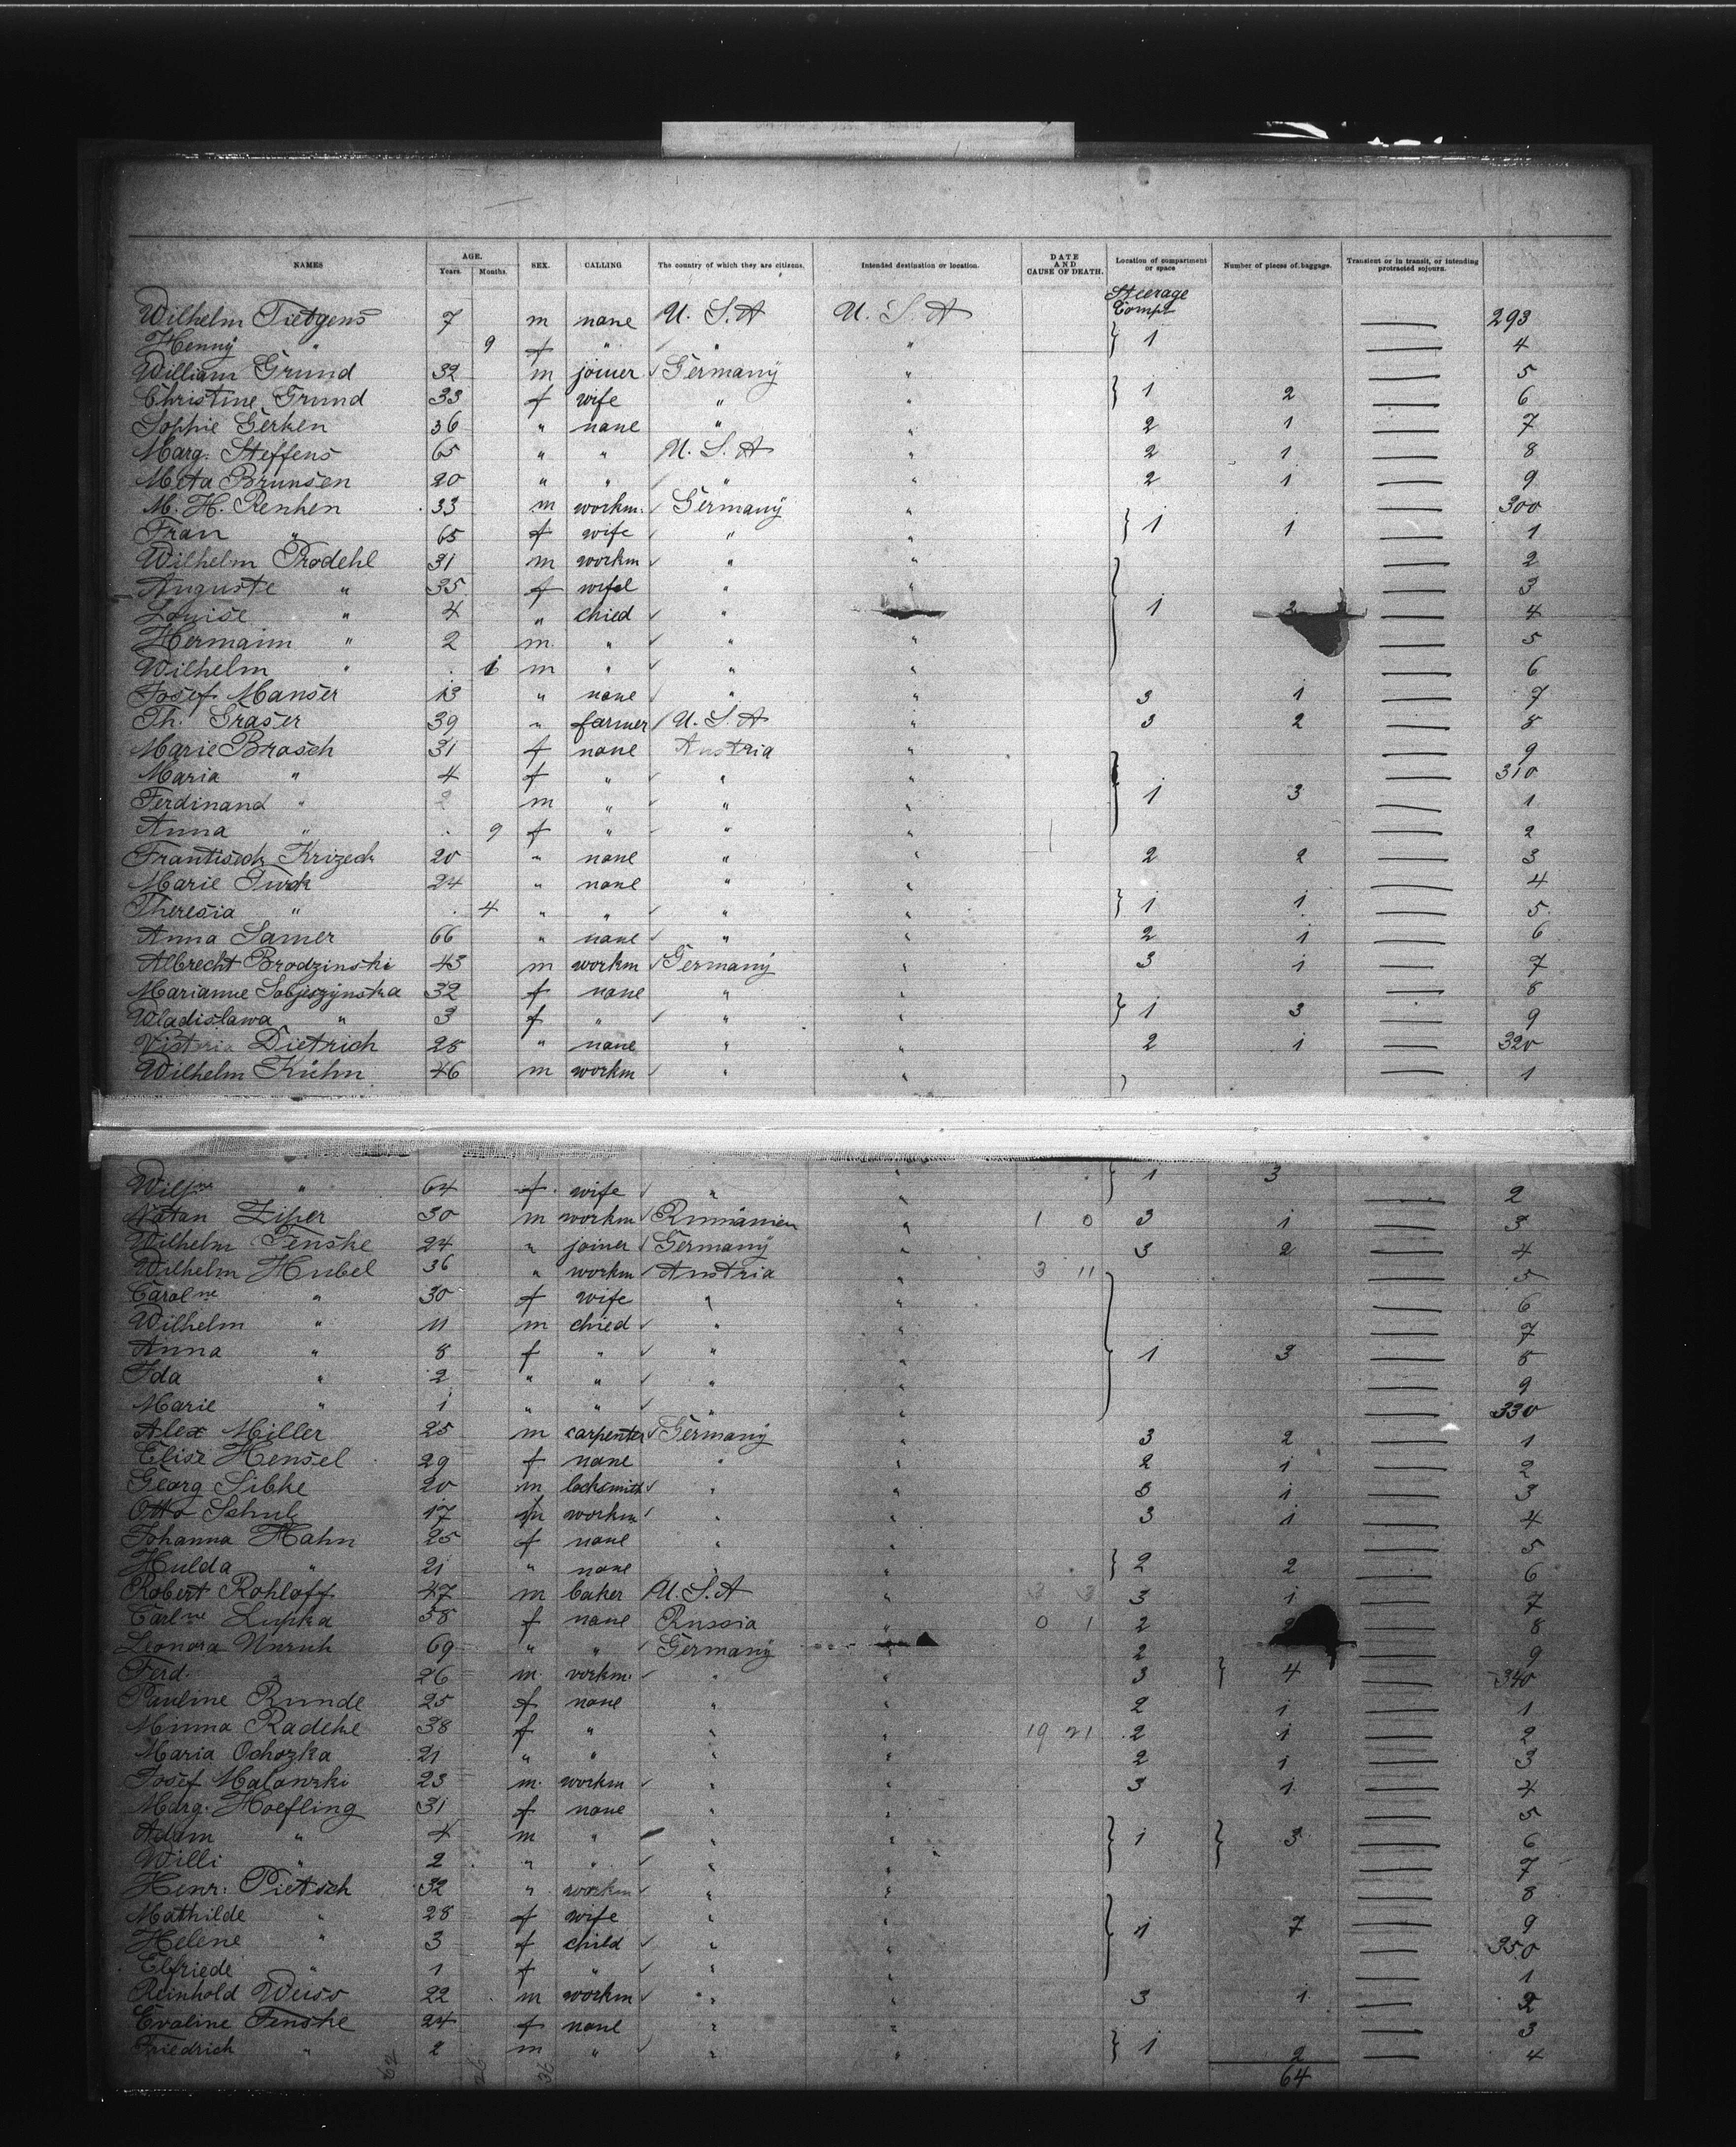 NAMES AGE. Years. Months. SEX. CALLING The country of which they are citizens. Intended destination or location. DATE AND CAUSE OF DEATH. Location of compartment or space Number of pieces of baggage. Transient or in transit, or intending protracted sojourn.
Steerage Compt
Wilhelm Tietgens 7 m none U. S. A U. S. A — 293
Henny " 9 f " " " 1 — 4
William Grund 32 m joiner Germany " — 5
Christine Grund 33 f wife " " 1 2 — 6
Sophie Gerken 36 " none " " 2 1 — 7
Marg. Steffens 65 " " U. S. A " 2 1 — 8
Meta Brunsen 20 " " " " 2 1 — 9
M. H. Renken 33 m workm. Germany " — 300
Frau " 65 f wife " " 1 1 — 1
Wilhelm Prodehl 31 m workm " " — 2
Auguste " 35 f wife " " — 3
Louise " 4 " chied " " 1 — 4
Hermann " 2 m. " " " — 5
Wilhelm " 1 m " " " — 6
Josef Manser 13 " none " " 3 1 — 7
Th. Graser 39 " farmer U. S. A " 3 2 — 8
Marie Brosch 31 f none Austria " — 9
Maria " 4 f " " " — 310
Ferdinand " 2 m " " " 1 3 — 1
Anna " 9 f " " " — 2
Frantisek Krizeck 20 " none " " 2 2 — 3
Marie Turck 24 " none " " — 4
Theresia " 4 " " " " 1 1 — 5
Anna Samer 66 " none " " 2 1 — 6
Albrecht Brodzinski 43 m workm Germany " 3 1 — 7
Marianne Sobjeszynska 32 f none " " — 8
Wladislawa " 3 f " " " 1 3 — 9
Dietrich 28 " none " " 2 1 — 320
Wilhelm Kühn 46 m workm " " — 1
Wilhne " 64 f wife " " 1 3 — 2
Natan Ziper 30 m workm Rumänien " 1 0 3 1 — 3
Wilhelm Fenske 24 " joiner Germany " 3 2 — 4
Wilhelm Hubel 36 " workm Austria " 3 11 — 5
Carolne " 30 f wife " " — 6
Wilhelm " 11 m chied " " — 7
Anna " 8 f " " " 1 3 — 8
Ida " 2 " " " " — 9
Marie " 1 " " " " — 330
Alex Miller 25 m carpenter Germany " 3 2 — 1
Elise Hensel 29 f none " " 2 1 — 2
Georg Sibke 20 m locksmith " " 3 1 — 3
Otto Schulz 17 m workm " " 3 1 — 4
Johanna Hahn 25 f none " " — 5
Hulda " 21 " none " " 2 2 — 6
Robert Rohloff 47 m baker U. S. A " 3 3 3 1 — 7
Carlne Lupka 38 f none Russia " 0 1 2 2 — 8
Leonora Unruh 69 " " Germany " 2 — 9
Ferd. " 26 m. workm. " " 3 4 — 340
Pauline Runde 25 f none " " 2 1 — 1
Minna Radeke 38 f " " " 19 21 2 1 — 2
Maria Ochozka 21 " " " " 2 1 — 3
Josef Malowzki 23 m. workm " " 3 1 — 4
Marg. Hoefling 31 f none " " — 5
Adam " 4 m " " " 1 3 — 6
Willi " 2 " " " " — 7
Henr. Pietsch 32 " workm " " — 8
Mathilde " 28 f wife " " 1 7 — 9
Helene " 3 f child " " — 350
Elfriede " 1 f " " " — 1
Reinhold Weiss 22 m workm " " 3 1 — 2
Evaline Fenske 24 f none " " — 3
Friedrich " 2 m " " " 1 2 — 4
62 26 36 64